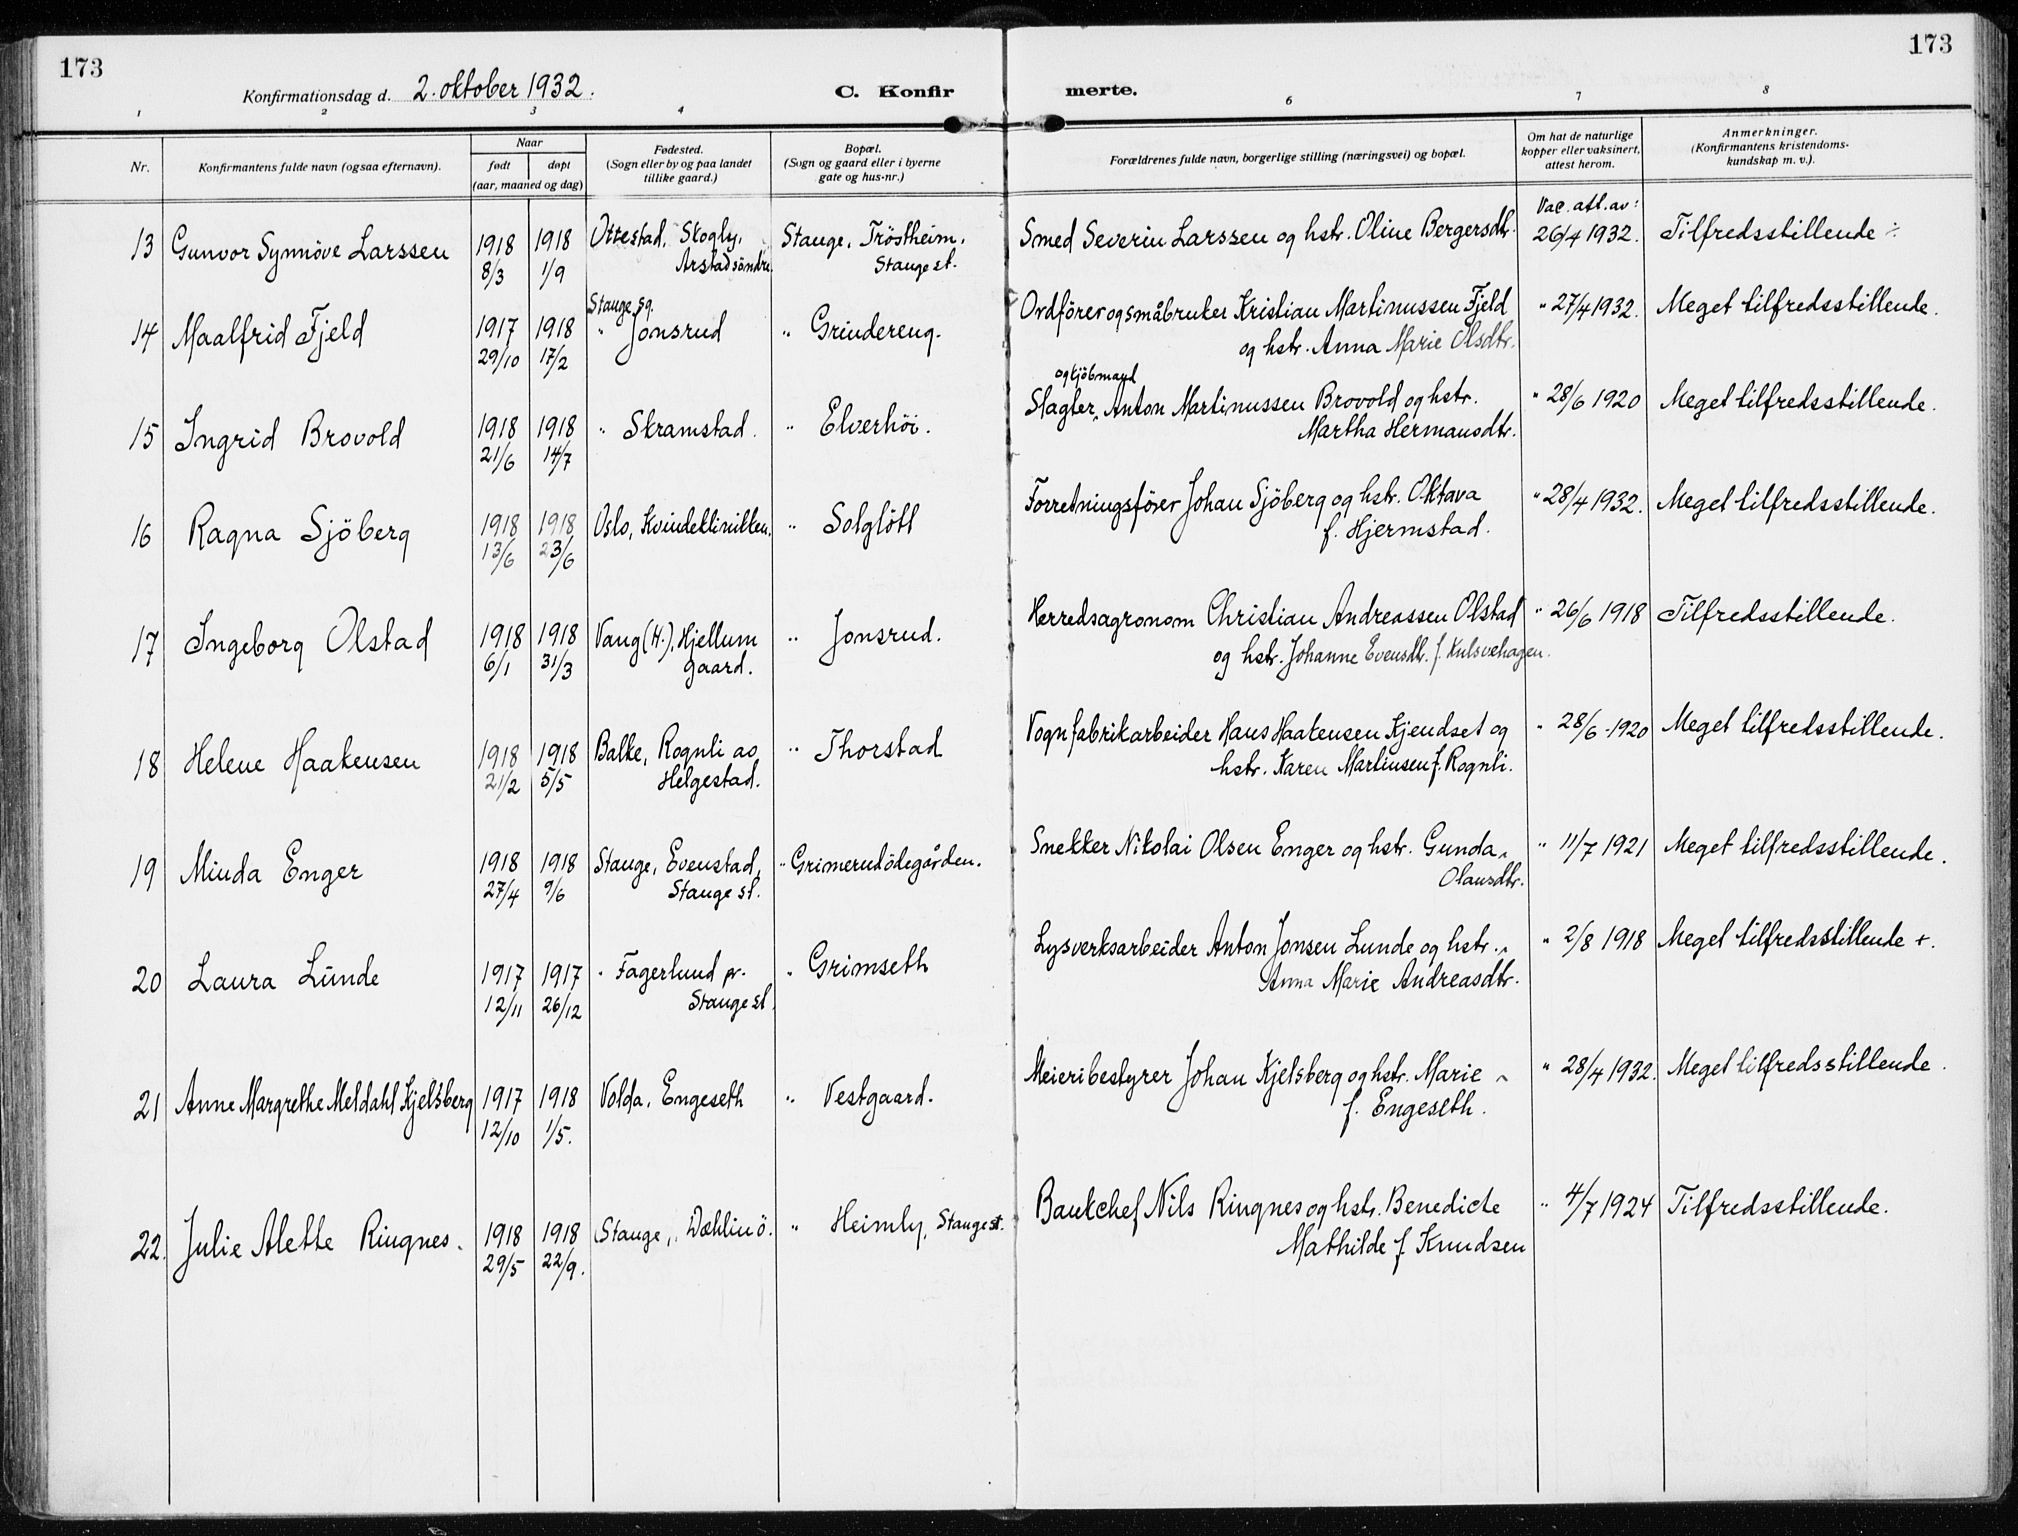 173
173
Konfirmationsdag d. 2. oktober 1932.
C. Konfirmerte.
1 2 3 4 6 7 8
Nr.
Konfirmantens fulde navn (ogsaa efternavn).
Naar
født døpt
(aar, maaned og dag)
Fødested.
(Sogn eller by og paa landet
tillike gaard.)
Bopæl.
(Sogn og gaard eller i byerne
gate og hus-nr.)
Forældrenes fulde navn, borgerlige stilling (næringsvei) og bopæl.
Om hat de naturlige
kopper eller vaksinert,
attest herom.
Anmerkninger.
(Konfirmantens kristendoms-
kundskap m. v.).
13 Gunvor Synnöve Larssen 1918 8/3 1918 1/9 Ottestad, Skogly, Arstad söndre. Stange, Tröstheim, Stange st. Smed Severin Larssen og hstr. Oline Bergersdtr. Vac. att. av: 26/4 1932. Tilfredsstillende ÷
14 Maalfrid Fjeld 1917 29/10 1918 17/2 Stange sg. " Jonsrud " Grindereng. Ordförer og småbruker Kristian Martinussen Fjeld og hstr. Anna Marie Olsdtr. " 27/4 1932. Meget tilfredsstillende.
15 Ingrid Brovold 1918 21/6 1918 14/7 " Skramstad. " Elverhöi. Slagter og kjöbmand Anton Martinussen Brovold og hstr. Martha Hermansdtr. " 28/6 1920 Meget tilfredsstillende.
16 Ragna Sjöberg 1918 13/6 1918 23/6 Oslo, Kvindeklinikken. " Solglött Forretningsförer Johan Sjöberg og hstr. Oktava f. Hjermstad. " 28/4 1932. Meget tilfredsstillende.
17 Ingeborg Olstad 1918 6/1 1918 31/3 Vang (H.), Hjellum gaard. " Jonsrud. Herredsagronom Christian Andreassen Olstad og hstr. Johanne Evensdtr. f. Kulsvehagen. " 26/6 1918 Tilfredsstillende.
18 Helene Haakensen 1918 21/2 1918 5/5 Balke, Rognli av Helgestad. " Thorstad Vognfabrikarbeider Hans Haakensen Kjendset og hstr. Karen Martinsen f. Rognli. " 28/6 1920 Meget tilfredsstillende.
19 Minda Enger 1918 27/4 1918 9/6 Stange, Evenstad, Stange st. " Grimerudödegården. Snekker Nikolai Olsen Enger og hstr. Gunda Olausdtr. " 11/7 1921 Meget tilfredsstillende.
20 Laura Lunde 1917 12/11 1917 26/12 " Fagerlund pr. Stange st. " Grimseth Lysverksarbeider Anton Jonsen Lunde og hstr. Anna Marie Andreasdtr. " 2/8 1918 Meget tilfredsstillende +.
21 Anne Margrethe Meldahl Kjelsberg 1917 12/10 1918 1/5. Volda, Engeseth " Vestgaard. Meieribestyrer Johan Kjelsberg og hstr. Marie f. Engeseth. " 28/4 1932. Meget tilfredsstillende.
22. Julie Alette Ringnes. 1918 29/5 1918 22/9. Stange, Dæhlin ö. " Heimly, Stange st. Bankchef Nils Ringnes og hstr. Benedicte Mathilde f. Knudsen " 4/7 1924 Tilfredsstillende.